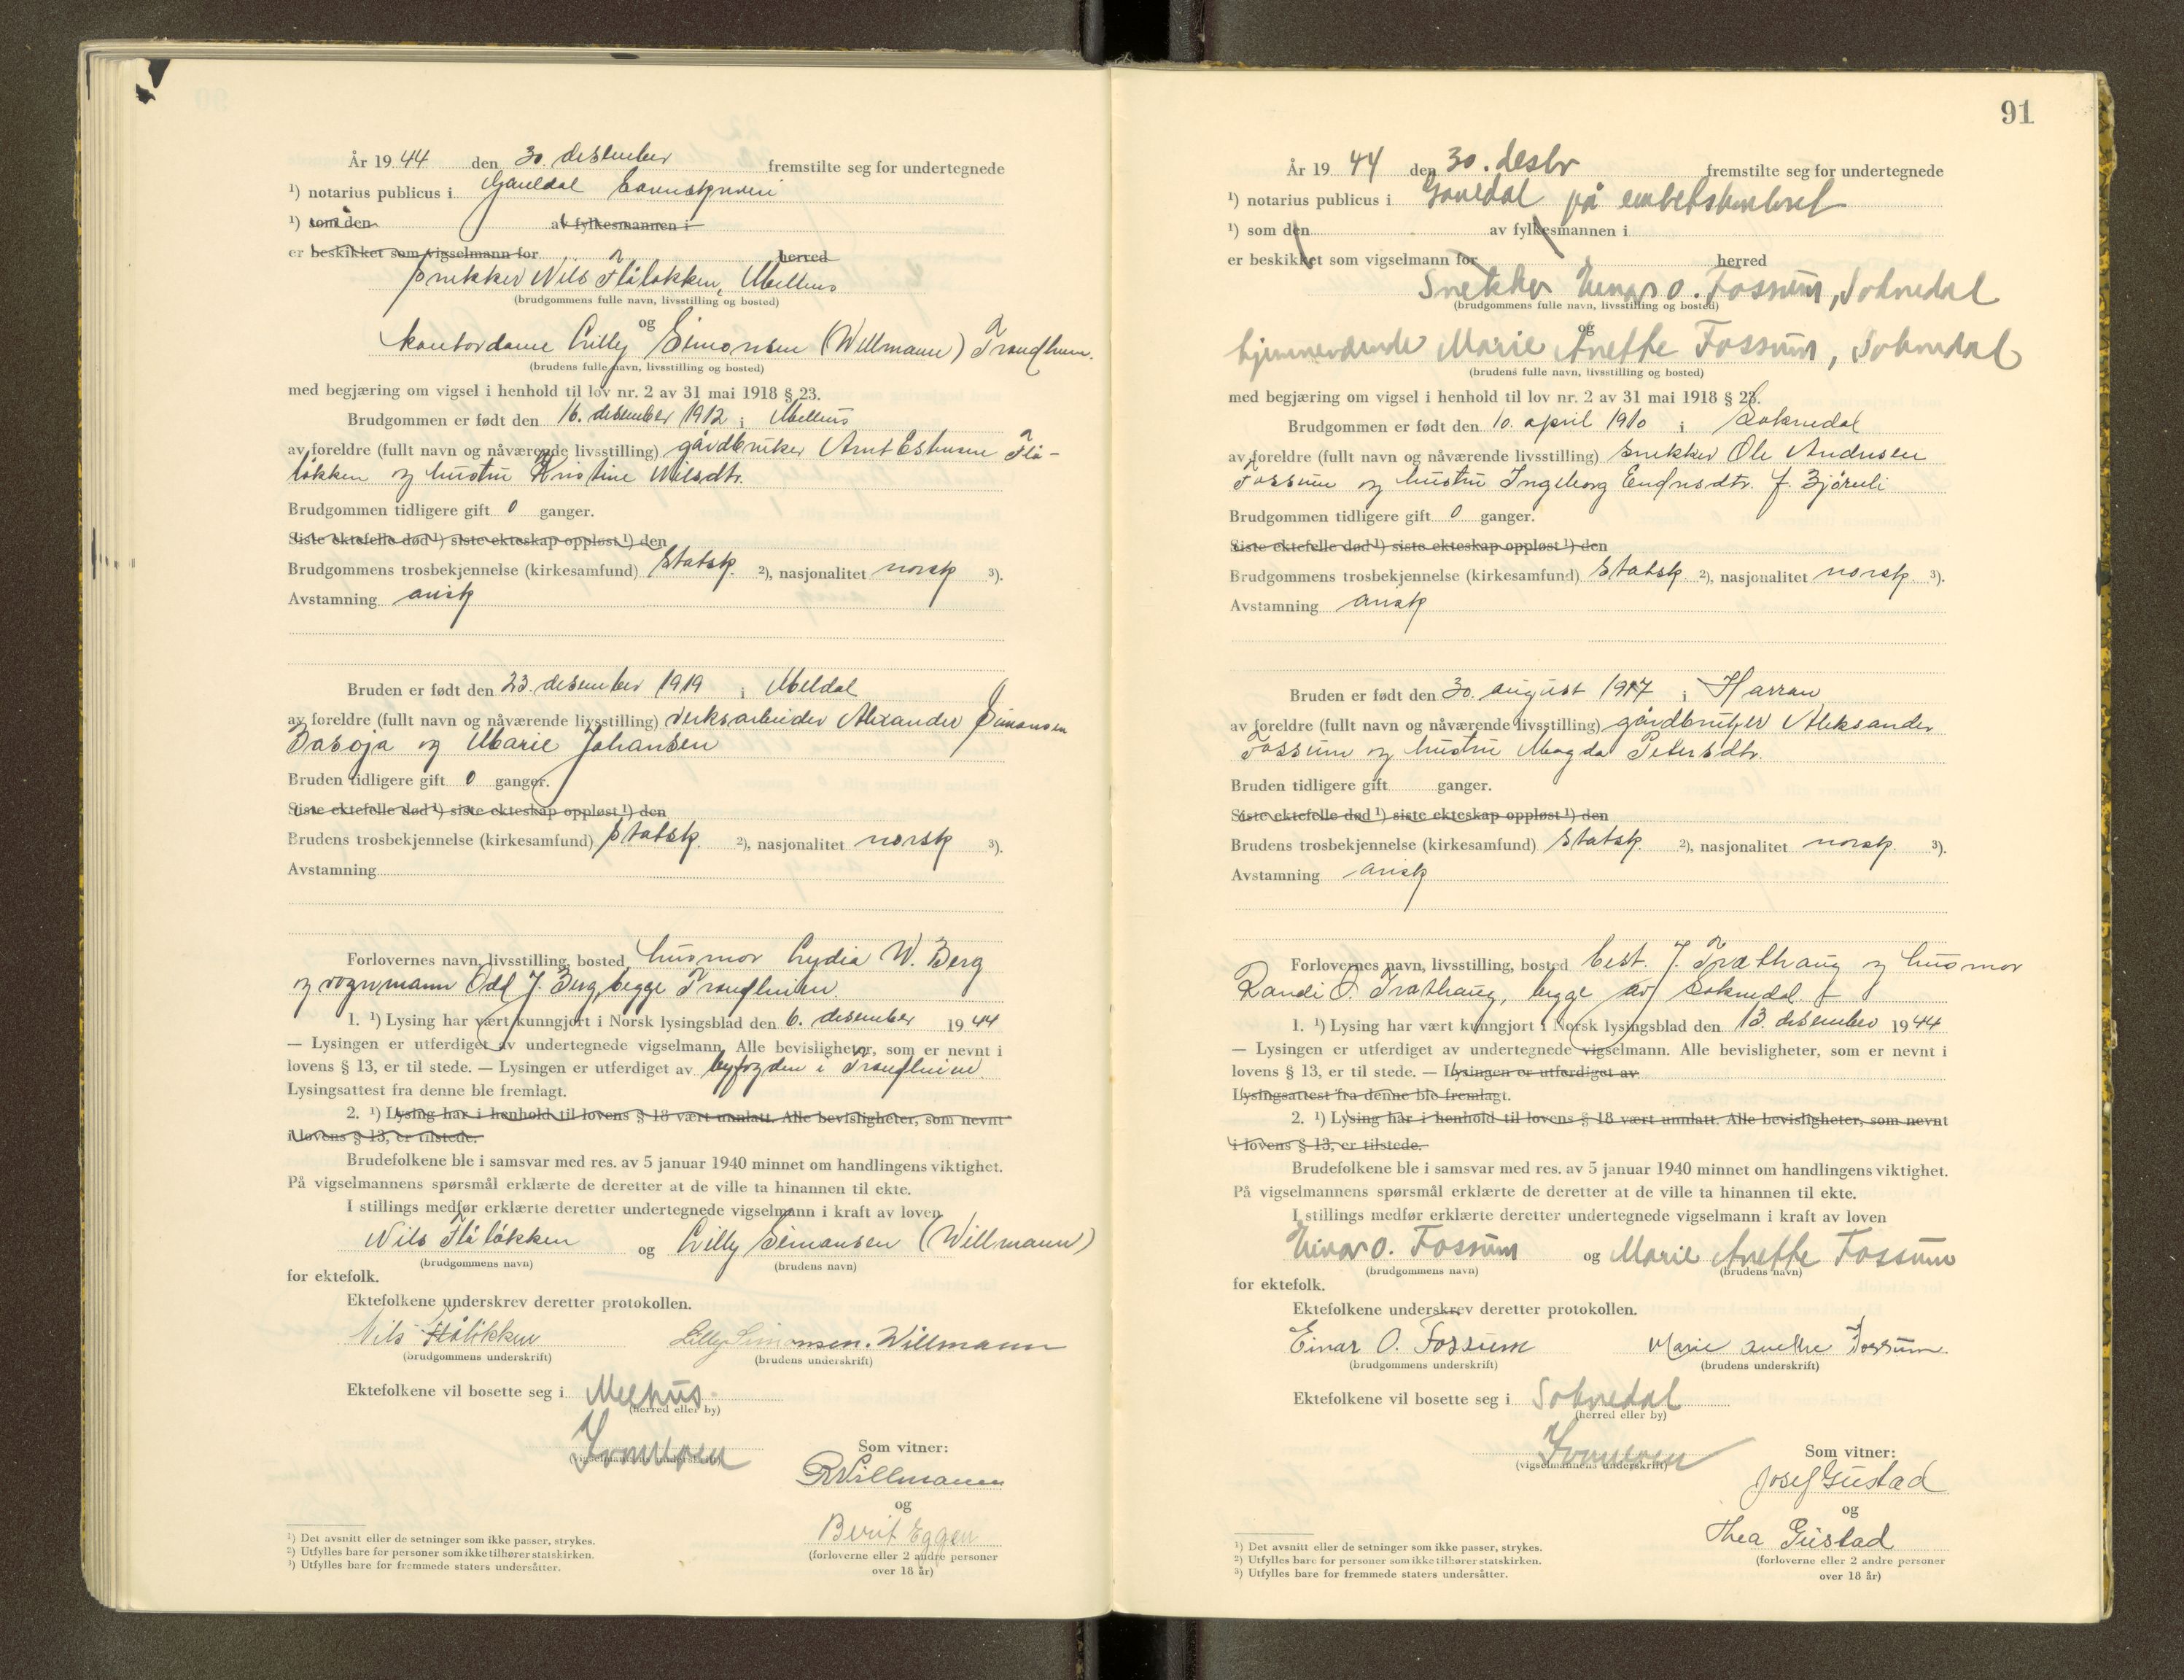 År 19 44 den 30. desember fremstilte seg for undertegnede
¹) notarius publicus i Gauldal
¹) som den av fylkesmannen i
er beskikket som vigselmann for herred
snekker Nils Flåløkken, Melhus
(brudgommens fulle navn, livsstilling og bosted)
og
kontordame Lilly Simonsen (Willmann) Trondheim.
(brudens fulle navn, livsstilling og bosted)
med begjæring om vigsel i henhold til lov nr. 2 av 31 mai 1918 § 23.
Brudgommen er født den 16. desember 1912 i Melhus
av foreldre (fullt navn og nåværende livsstilling) gårdbruker Arnt Flå-
løkken og hustru Kristine Nilsdtr.
Brudgommen tidligere gift 0 ganger.
Siste ektefelle død ¹) siste ekteskap oppløst ¹) den
Brudgommens trosbekjennelse (kirkesamfund) Statsk. ²), nasjonalitet norsk ³).
Avstamning arisk
Bruden er født den 23. desember 1919 i Meldal
av foreldre (fullt navn og nåværende livsstilling) verksarbeider Alexander Simonsen
og Marie Johansen
Bruden tidligere gift 0 ganger.
Siste ektefelle død ¹) siste ekteskap oppløst ¹) den
Brudens trosbekjennelse (kirkesamfund) Statsk. ²), nasjonalitet norsk ³).
Avstamning
Forlovernes navn, livsstilling, bosted husmor Lydia W. Berg
og vognmann Odd J. Berg, begge Trondheim.
1. ¹) Lysing har vært kunngjort i Norsk lysingsblad den 6. desember 19 44
— Lysingen er utferdiget av undertegnede vigselmann. Alle bevisligheter, som er nevnt i
lovens § 13, er til stede. — Lysingen er utferdiget av byfogden i Trondheim.
Lysingsattest fra denne ble fremlagt.
2. ¹) Lysing har i henhold til lovens § 18 vært unnlatt. Alle bevisligheter, som nevnt
i lovens § 13, er tilstede.
Brudefolkene ble i samsvar med res. av 5 januar 1940 minnet om handlingens viktighet.
På vigselmannens spørsmål erklærte de deretter at de ville ta hinannen til ekte.
I stillings medfør erklærte deretter undertegnede vigselmann i kraft av loven
Nils Flåløkken og Lilly Simonsen (Willmann)
(brudgommens navn) (brudens navn)
for ektefolk.
Ektefolkene underskrev deretter protokollen.
Nils Flåløkken Lilly Simonsen. Willmann
(brudgommens underskrift) (brudens underskrift)
Ektefolkene vil bosette seg i Melhus.
(herred eller by)
Som vitner:
(vigselmannens underskrift)
R Willmann
og
Berit Eggen
(forloverne eller 2 andre personer
over 18 år)
¹) Det avsnitt eller de setninger som ikke passer, strykes.
²) Utfylles bare for personer som ikke tilhører statskirken.
³) Utfylles bare for fremmede staters undersåtter.
91
År 19 44 den 30. desbr fremstilte seg for undertegnede
¹) notarius publicus i Gauldal på embetskontoret
¹) som den av fylkesmannen i
er beskikket som vigselmann for herred
Snekker Einar O. Fossum, Soknedal
(brudgommens fulle navn, livsstilling og bosted)
og
hjemmeværende Marie Anethe Fossum, Soknedal
(brudens fulle navn, livsstilling og bosted)
med begjæring om vigsel i henhold til lov nr. 2 av 31 mai 1918 § 23.
Brudgommen er født den 10. april 1910 i Soknedal
av foreldre (fullt navn og nåværende livsstilling) snekker Ole Andersen
Fossum og hustru Ingeborg
Brudgommen tidligere gift 0 ganger.
Siste ektefelle død ¹) siste ekteskap oppløst ¹) den
Brudgommens trosbekjennelse (kirkesamfund) Statsk ²), nasjonalitet norsk. ³).
Avstamning arisk
Bruden er født den 30. august 1917 i Harran
av foreldre (fullt navn og nåværende livsstilling) gårdbruker Aleksander
Fossum og hustru Magda Petersdtr.
Bruden tidligere gift ganger.
Siste ektefelle død ¹) siste ekteskap oppløst ¹) den
Brudens trosbekjennelse (kirkesamfund) Statsk. ²), nasjonalitet norsk. ³).
Avstamning arisk
Forlovernes navn, livsstilling, bosted best. J. Træthaug og husmor
Randi O. Træthaug, begge av Soknedal
1. ¹) Lysing har vært kunngjort i Norsk lysingsblad den 13. desember 19 44
— Lysingen er utferdiget av undertegnede vigselmann. Alle bevisligheter, som er nevnt i
lovens § 13, er til stede. — Lysingen er utferdiget av
Lysingsattest fra denne ble fremlagt.
2. ¹) Lysing har i henhold til lovens § 18 vært unnlatt. Alle bevisligheter, som nevnt
i lovens § 13, er tilstede.
Brudefolkene ble i samsvar med res. av 5 januar 1940 minnet om handlingens viktighet.
På vigselmannens spørsmål erklærte de deretter at de ville ta hinannen til ekte.
I stillings medfør erklærte deretter undertegnede vigselmann i kraft av loven
Einar O. Fossum og Marie Anethe Fossum
(brudgommens navn) (brudens navn)
for ektefolk.
Ektefolkene underskrev deretter protokollen.
Einar O. Fossum Marie Anethe Fossum.
(brudgommens underskrift) (brudens underskrift)
Ektefolkene vil bosette seg i Soknedal
(herred eller by)
Som vitner:
(vigselmannens underskrift)
Josef Gustad
og
Thea Gustad
(forloverne eller 2 andre personer
over 18 år)
¹) Det avsnitt eller de setninger som ikke passer, strykes.
²) Utfylles bare for personer som ikke tilhører statskirken.
³) Utfylles bare for fremmede staters undersåtter.